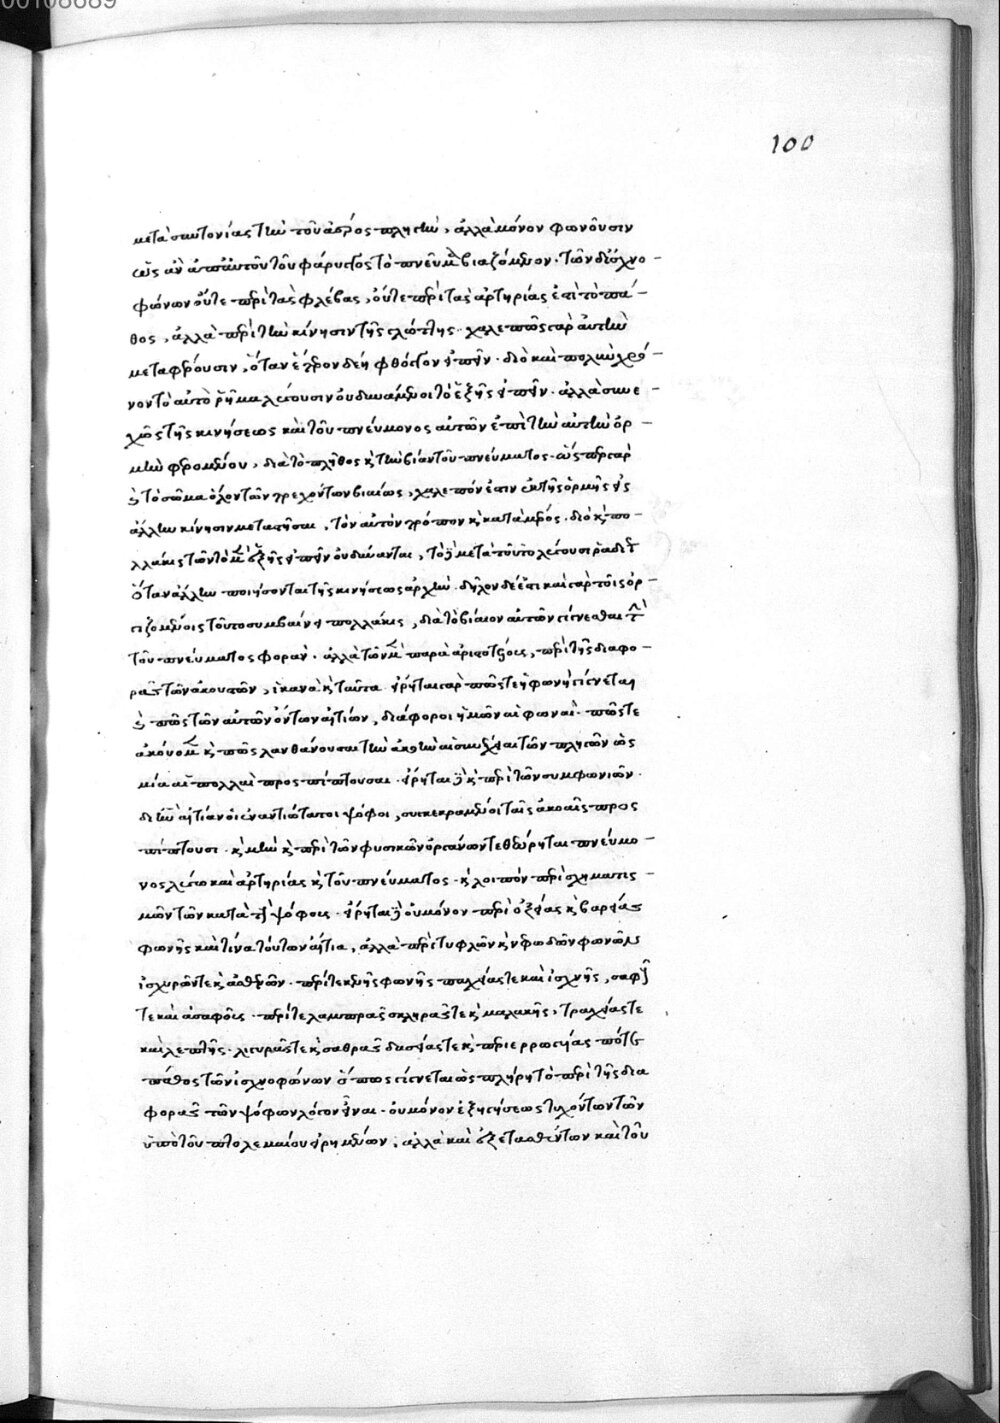 100
μετὰ συντονίας τὴν τοῦ ἀέρος πληγὴν, ἀλλὰ μόνον φωνοῦσιν
ὡς ἂν ἀπ' αὐτοῦ τοῦ φάρυγγος τὸ πνεῦμα βιαζόμενον. τῶν δ' ἰσχνο-
φώνων οὔτε περὶ τὰς φλέβας, οὔτε περὶ τὰς ἀρτηρίας ἐστὶ τὸ πά-
θος, ἀλλὰ περὶ τὴν κίνησιν τῆς γλώττης. χαλεπῶς γὰρ αὐτὴν
μεταφέρουσιν, ὅταν ἕτερον δέῃ φθόγγον εἰπεῖν. διὸ καὶ πολὺν χρό-
νον τὸ αὐτὸ ῥῆμα λέγουσιν οὐ δυνάμενοι τὸ ἑξῆς εἰπεῖν. ἀλλὰ συνε-
χῶς τῆς κινήσεως καὶ τοῦ πνεύμονος αὐτῶν ἐπὶ τὴν αὐτὴν ὁρ-
μὴν φερομένου, διὰ τὸ πλῆθος κ τὴν βίαν τοῦ πνεύματος. ὥσπερ γὰρ
κ τὸ σῶμα ὅλον τῶν τρεχόντων βιαίως, χαλεπόν ἐστιν ἐκ τῆς ὁρμῆς εἰς
ἄλλην κίνησιν μεταστῆσαι, τὸν αὐτὸν τρόπον κ κατὰ μέρος. διὸ κ πο-
λλάκις τῶν τὸ μὲν ἑξῆς εἰπεῖν οὐ δύνανται, τὸ δὲ μετὰ τοῦτο λέγουσι ῥαδίως
ὅταν ἄλλην ποιήσονται τῆς κινήσεως ἀρχήν. δῆλον δέ ἐστι καὶ γὰρ τοῖς ὀρ-
γιζομένοις τοῦτο συμβαίνει πολλάκις, διὰ τὸ βίαιον αὐτῶν γίγνεσθαι τὴν
τοῦ πνεύματος φοράν. ἀλλὰ τῶν μὲν παρὰ ἀριστοτέλους, περὶ τῆς διαφο-
ρᾶς τῶν ἀκουστῶν, ἱκανὰ κ ταῦτα. εἴρηται γὰρ πῶς τε ἡ φωνὴ γίγνεται
κ πῶς τῶν αὐτῶν ὄντων αἰτίων, διάφοροι ἡμῶν αἱ φωναί. πῶς τε
ἀκούομεν κ πῶς λανθάνουσαι τὴν ἀκοὴν αἱ συνέχειαι τῶν πληγῶν ὡς
μία αἱ πολλαὶ προσπίπτουσαι. εἴρηται δὲ κ περὶ τῶν συμφωνιῶν.
δι' ἣν αἰτίαν οἱ ἐναντιότατοι ψόφοι, συγκεκραμένοι ταῖς ἀκοαῖς προς
πίπτουσι. κ μὴν κ περὶ τῶν φυσικῶν ὀργάνων τεθεώρηται πνεύμο-
νος λέγω καὶ ἀρτηρίας κ τοῦ πνεύματος. κ λοιπὸν περὶ σχηματισ-
μῶν τῶν κατὰ τοὺς ψόφους. εἴρηται δὲ οὐ μόνον περὶ ὀξείας κ βαρείας
φωνῆς καὶ τίνα τούτων αἴτια, ἀλλὰ περὶ τυφλῶν κ νεφωδῶν φωνῶν
ἰσχυρῶν τε κ ἀσθενῶν. περί τε κενῆς φωνῆς παχείας τε καὶ ἰσχνῆς, σαφοῦς
τε καὶ ἀσαφοῦς. περί τε λαμπρᾶς σκληρᾶς τε κ μαλακῆς, τραχείας τε
καὶ λεπτῆς. λιγυρᾶς τε κ σαθρᾶς δασείας τε κ περὶ ἐρρωγυίας πότε
πάθος τῶν ἰσχνοφώνων ὅπως γίγνεται ὡς πλήρη τὸ περὶ τῆς δια
φορᾶς τῶν ψόφων λόγον εἶναι. οὐ μόνον ἐξηγήσεως τυχόντων τῶν
ὑπὸ τοῦ πτολεμαίου εἰρημένων, ἀλλὰ καὶ ἐξετασθέντων καὶ τοῦ